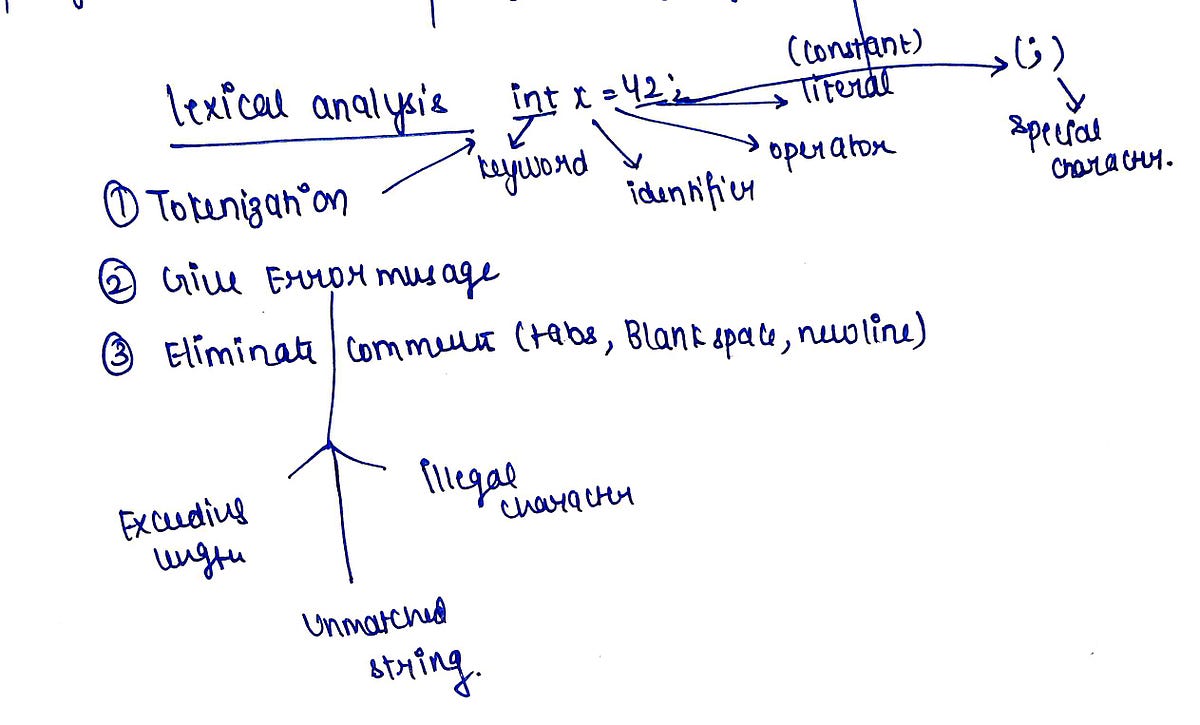 (constant)
(;)
lexical analysis int x = 42;
literal
special
character.
keyword
operator
identifier
① Tokenization
② Give Error message
③ Eliminate comment (tabs, Blank space, newline)
Exceeding
length
illegal
character
Unmatched
string.